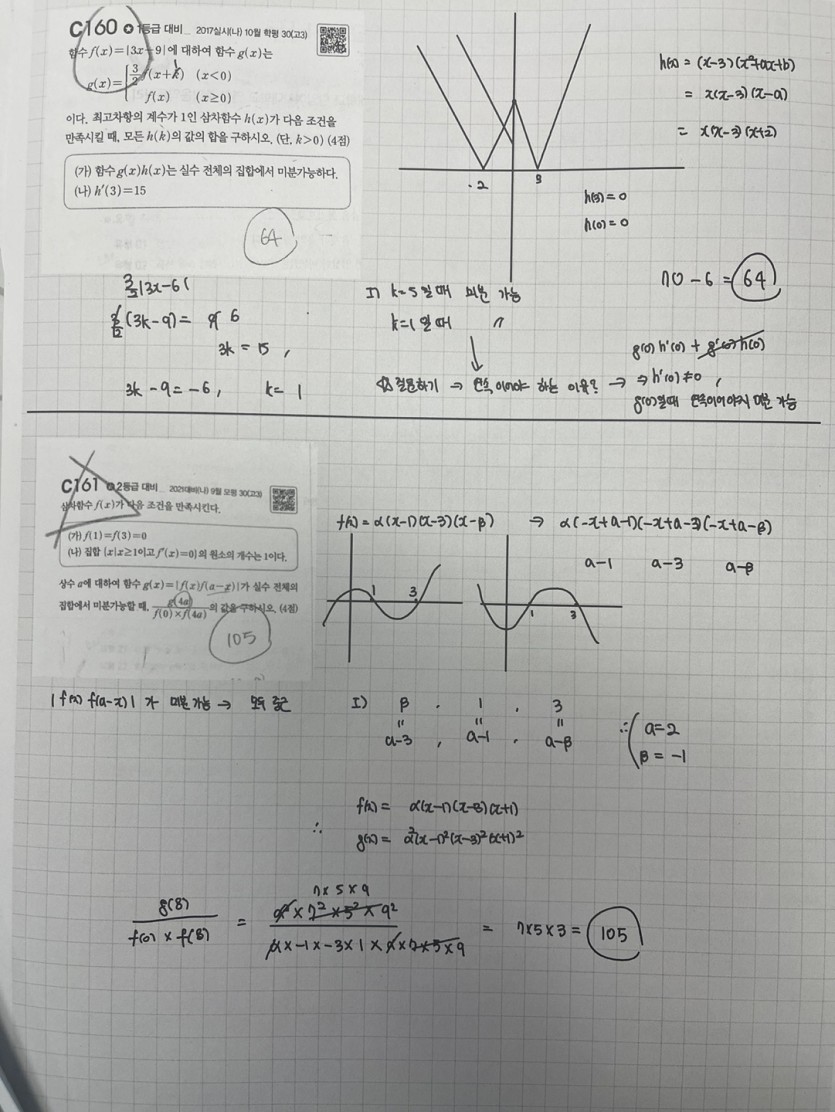 C160 1등급 대비 2017실시(나) 10월 학평 30(고3)
함수 f(x)=|3x-9|에 대하여 함수 g(x)는
g(x)={ 3/2 f(x+k) (x<0)
f(x) (x≥0)
이다. 최고차항의 계수가 1인 삼차함수 h(x)가 다음 조건을
만족시킬 때, 모든 h(k)의 값의 합을 구하시오. (단, k>0) (4점)
(가) 함수 g(x)h(x)는 실수 전체의 집합에서 미분가능하다.
(나) h'(3)=15
64
-2 3
h(x) = (x-3)(x²+ax+b)
= x(x-3)(x-a)
= x(x-3)(x+2)
h(3)=0
h(0)=0
70 - 6 = 64
3/2|3x-6|
(3k-9) = 6
3k = 15,
3k-9=-6, k=1
I) k=5일때 미분 가능
k=1일때 〃
질문하기 → 연속이어야 하는 이유? → ⇒ h'(0)≠0,
g(0)h'(0) + g'(0)h(0)
g(0)일때 연속이어야지 미분 가능
C161 2등급 대비 2021대비(나) 9월 모평 30(고3)
삼차함수 f(x)가 다음 조건을 만족시킨다.
(가) f(1)=f(3)=0
(나) 집합 {x|x≥1이고 f'(x)=0}의 원소의 개수는 1이다.
상수 a에 대하여 함수 g(x)=|f(x)f(a-x)|가 실수 전체의
집합에서 미분가능할 때, g(4a)/f(0)×f(4a)의 값을 구하시오. (4점)
105
f(x) = α(x-1)(x-3)(x-β) ⇒ α(-x+a-1)(-x+a-3)(-x+a-β)
a-1 a-3 a-β
1 3
1 3
|f(x) f(a-x)| 가 미분가능 → 모두 중근
I) β . 1 . 3
〃 〃 〃
a-3 , a-1 . a-β
∴ ( a=2
β = -1
f(x) = α(x-1)(x-3)(x+1)
∴
g(x) = α²(x-1)²(x-3)²(x+1)²
7×5×9
g(8) / f(0)×f(8) = α²×7²×5²×9² / α×-1×-3×1×α×7×5×9 = 7×5×3 = 105